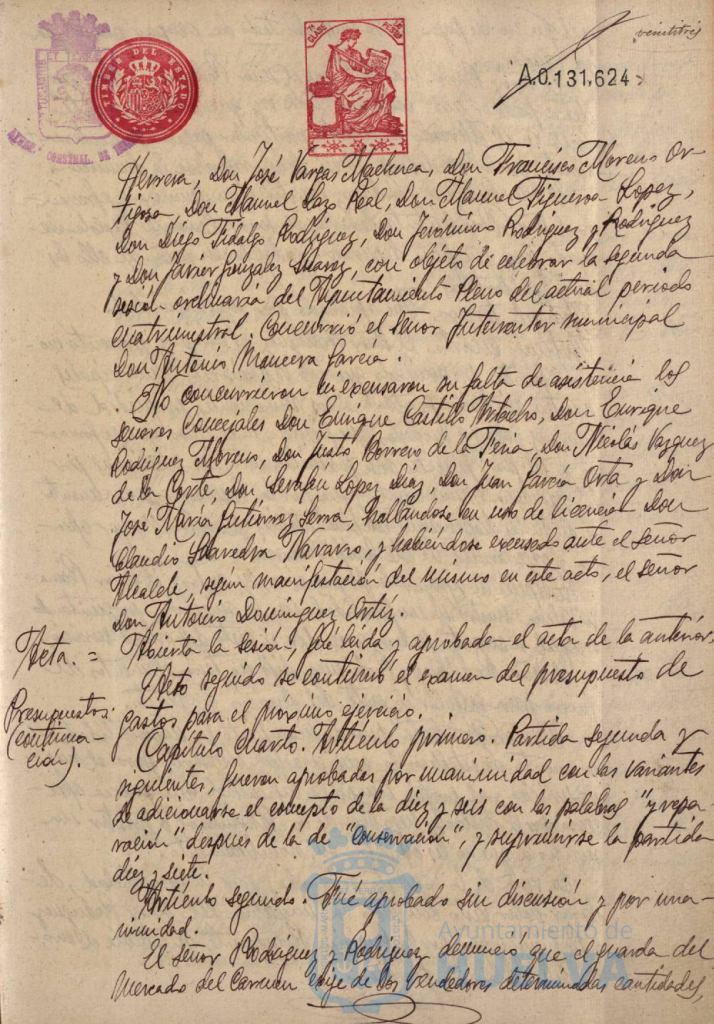 veintitrés
TIMBRE DEL ESTADO
7ª CLASE
A.0.131,624
Herrera, Don José Vargas Machuca, Don Francisco Moreno Or-
tigosa, Don Manuel Lazo Real, Don Manuel Figueroa Lopez,
Don Diego Fidalgo Rodríguez, Don Jerónimo Rodriguez y Rodriguez
y Don Javier Gonzalez Suarez, con objeto de celebrar la segunda
sesión ordinaria del Ayuntamiento Pleno del actual periodo
cuatrimestral. Concurrió el señor Interventor municipal
Don Antonio Mancera García.
No concurrieron ni excusaron su falta de asistencia los
señores Concejales Don Enrique Castillo Don Enrique
Rodriguez Moreno, Don Justo Borrero de la Feria, Don Nicolás Vazquez
de la Corte, Don Serafín Lopez Diaz, Don Juan García Orta y Don
José María Gutiérrez Serra, hallandose en uso de licencia Don
Claudio Saavedra Navarro, y habiéndose excusado ante el señor
Alcalde, según manifestación del mismo en este acto, el señor
Don Antonio Dominguez Ortiz.
Acta. = Abierta la sesión, fué leida y aprobada el acta de la anterior.
Acto seguido se continuó el examen del presupuesto de
Presupuestos. gastos para el próximo ejercicio.
(continua-
ción). Capítulo Cuarto. Artículo primero. Partida segunda y
siguientes, fueron aprobadas por unanimidad con las variantes
de adicionarse el concepto de la diez y seis con las palabras "y repa-
ración" después de la de "conservación", y suprimirse la partida
diez y siete.
Artículo segundo. Fué aprobado sin discusión y por una-
nimidad.
El señor Rodriguez y Rodriguez denunció que el guarda del
Mercado del Carmen exige de los vendedores determinadas cantidades,
Ayuntamiento de
HUELVA